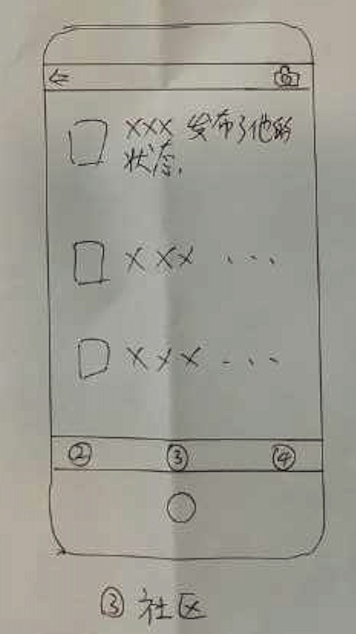 XXX 发布了他的
状态.
XXX ...
XXX ...
② ③ ④
③ 社区